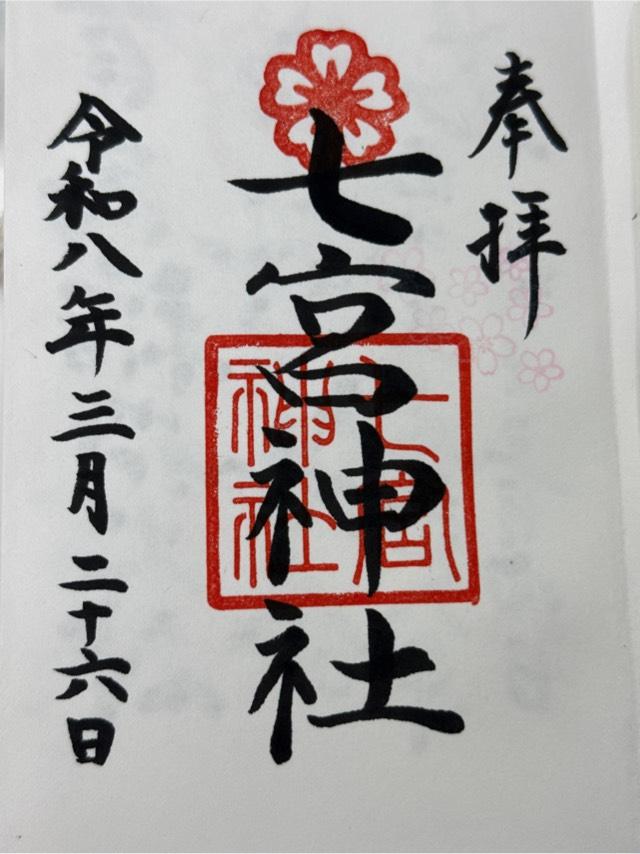 奉拝
七宮神社
七宮
神社
令和八年三月二十六日